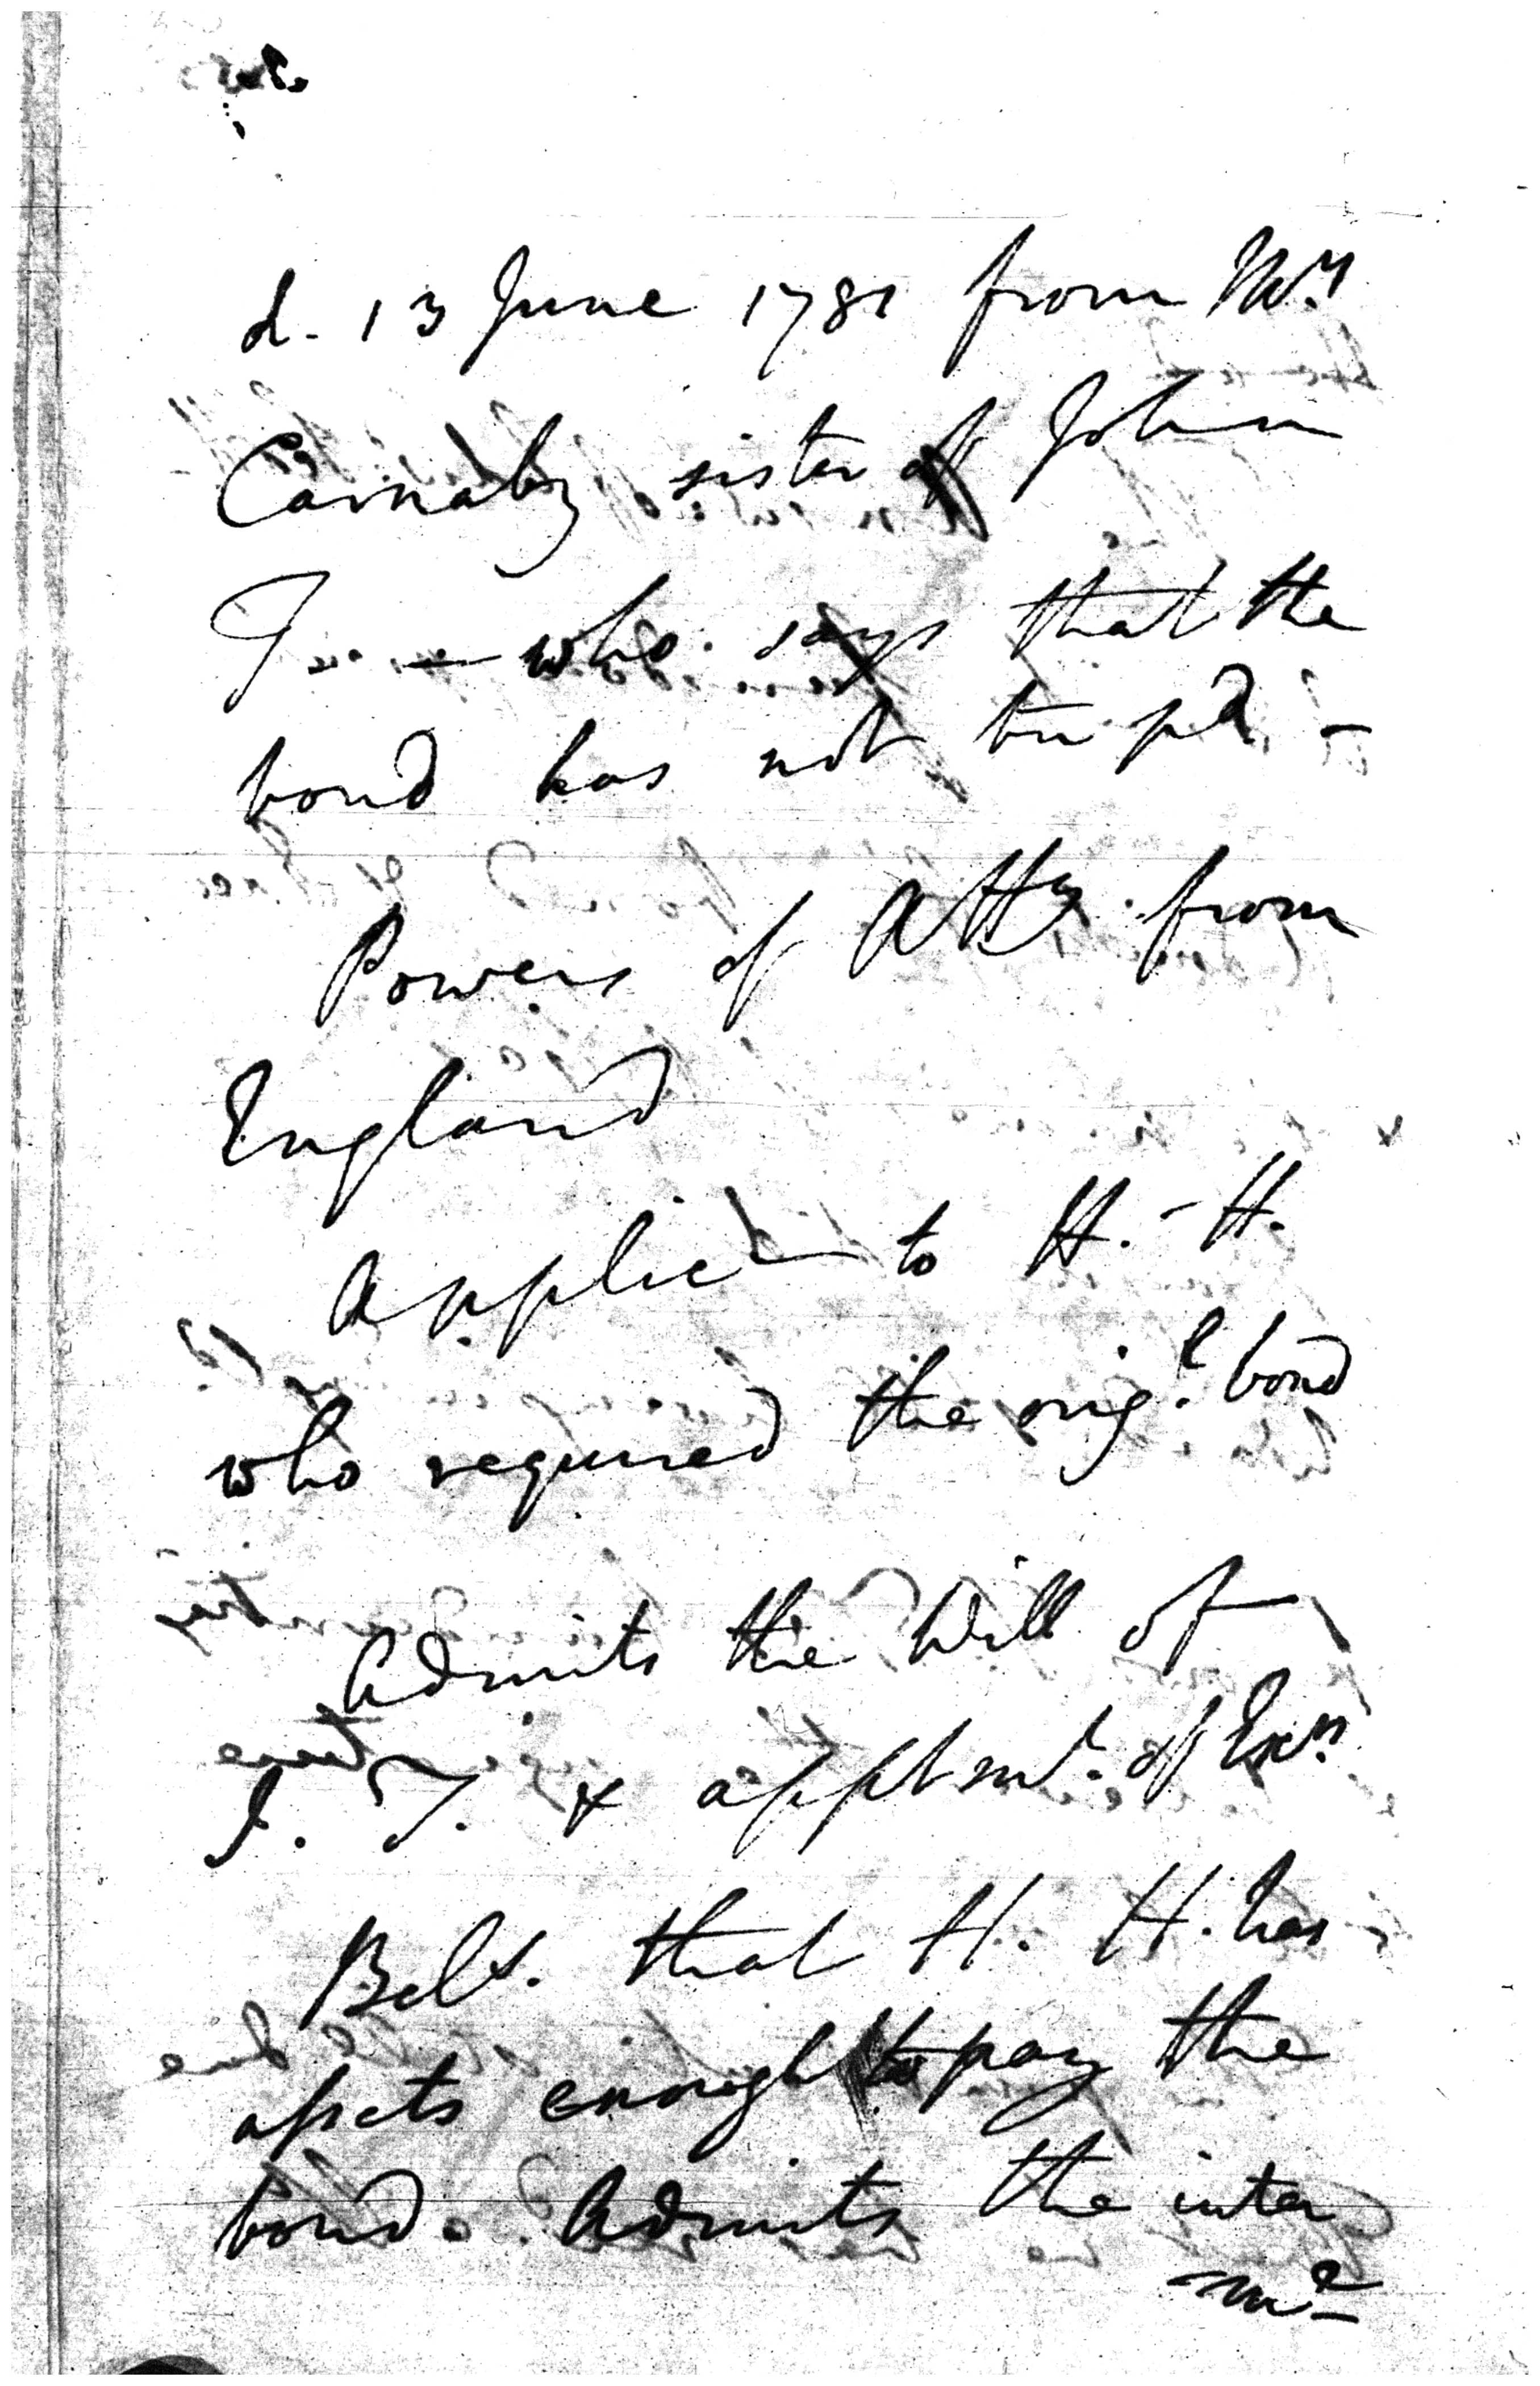 d. 13 June 1781 from Mrs
Carnaby sister of John
T—— who says that the
bond has not been pd –
Powers of Atty from
England
Applicn to H. – H.
who required the origl. bond
Admits the Will of
J. T. & apptmt. of Exrs.
that H. H. has
assets enough to pay the
bond. Admits the inter